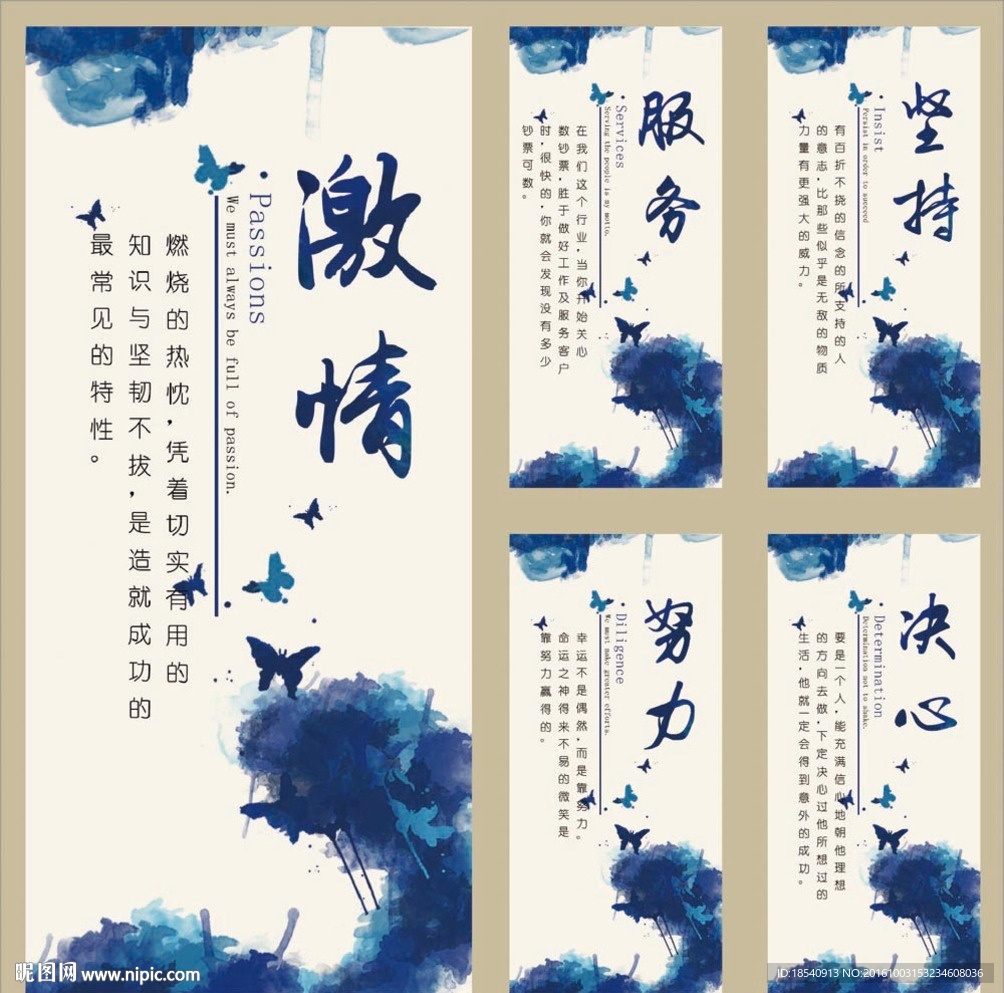 激情
Passions
We must always be full of passion.
燃烧的热忱,凭着切实有用的
知识与坚韧不拔,是造就成功的
最常见的特性。
服务
Services
Serving the people is my motto.
在我们这个行业,当你开始关心
数钞票,胜于做好工作及服务客户
时,很快的,你就会发现没有多少
钞票可数。
坚持
Insist
Persist in order to succeed
有百折不挠的信念的所支持的人
的意志,比那些似乎是无敌的物质
力量有更强大的威力。
努力
Diligence
We must make greater efforts.
幸运不是偶然,而是靠努力。
命运之神得来不易的微笑是
靠努力赢得的。
决心
Determination
Determination not to shake.
要是一个人,能充满信心地朝他理想
的方向去做,下定决心过他所想过的
生活,他就一定会得到意外的成功。
昵图网 www.nipic.com
ID:18540913 NO:20161003153234608036